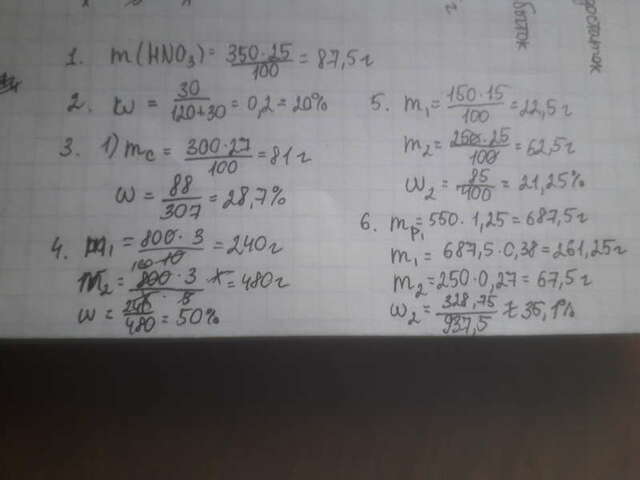 1. m(HNO₃) = 350·25/100 = 87,5г
2. w = 30/120+30 = 0,2 = 20%
3. 1) mс = 300·27/100 = 81г
w = 88/307 = 28,7%
4. m₁ = 800·3/10 = 240г
m₂ = 800·3/5 = 480г
w = 240/480 = 50%
5. m₁ = 150·15/100 = 22,5г
m₂ = 250·25/100 = 62,5г
w₂ = 85/400 = 21,25%
6. mр₁ = 550·1,25 = 687,5г
m₁ = 687,5·0,38 = 261,25г
m₂ = 250·0,27 = 67,5г
w₂ = 328,75/937,5